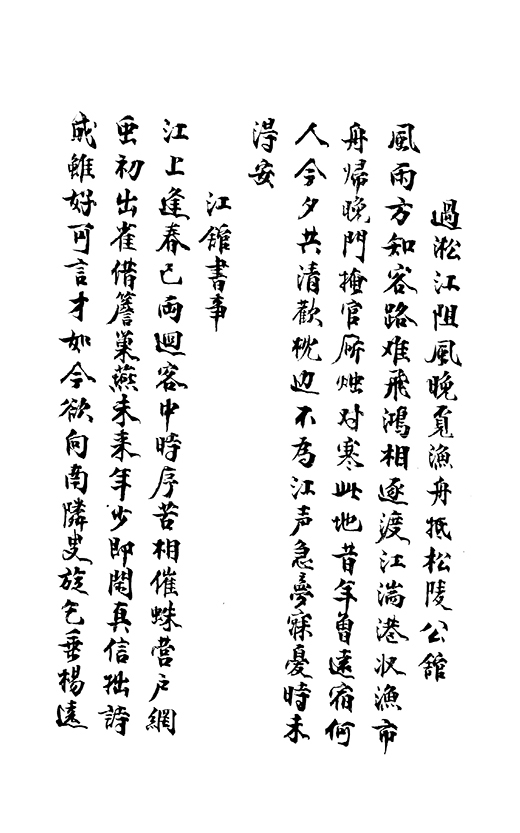 過淞江阻風晚覓漁舟抵松陵公館
風雨方知客路难飛鴻相逐渡江湍港収漁市
舟歸晚門掩官厛烛对寒此地昔年曾遠宿何
人今夕共清歡枕边不為江声急夢寐憂時未
得安
江館書事
江上逢春已両迴客中時序苦相催蛛営户網
虫初出雀借簷巢燕未来年少即閑真信拙詩
成雖好可言才如今欲向南隣叟旋乞垂楊遠